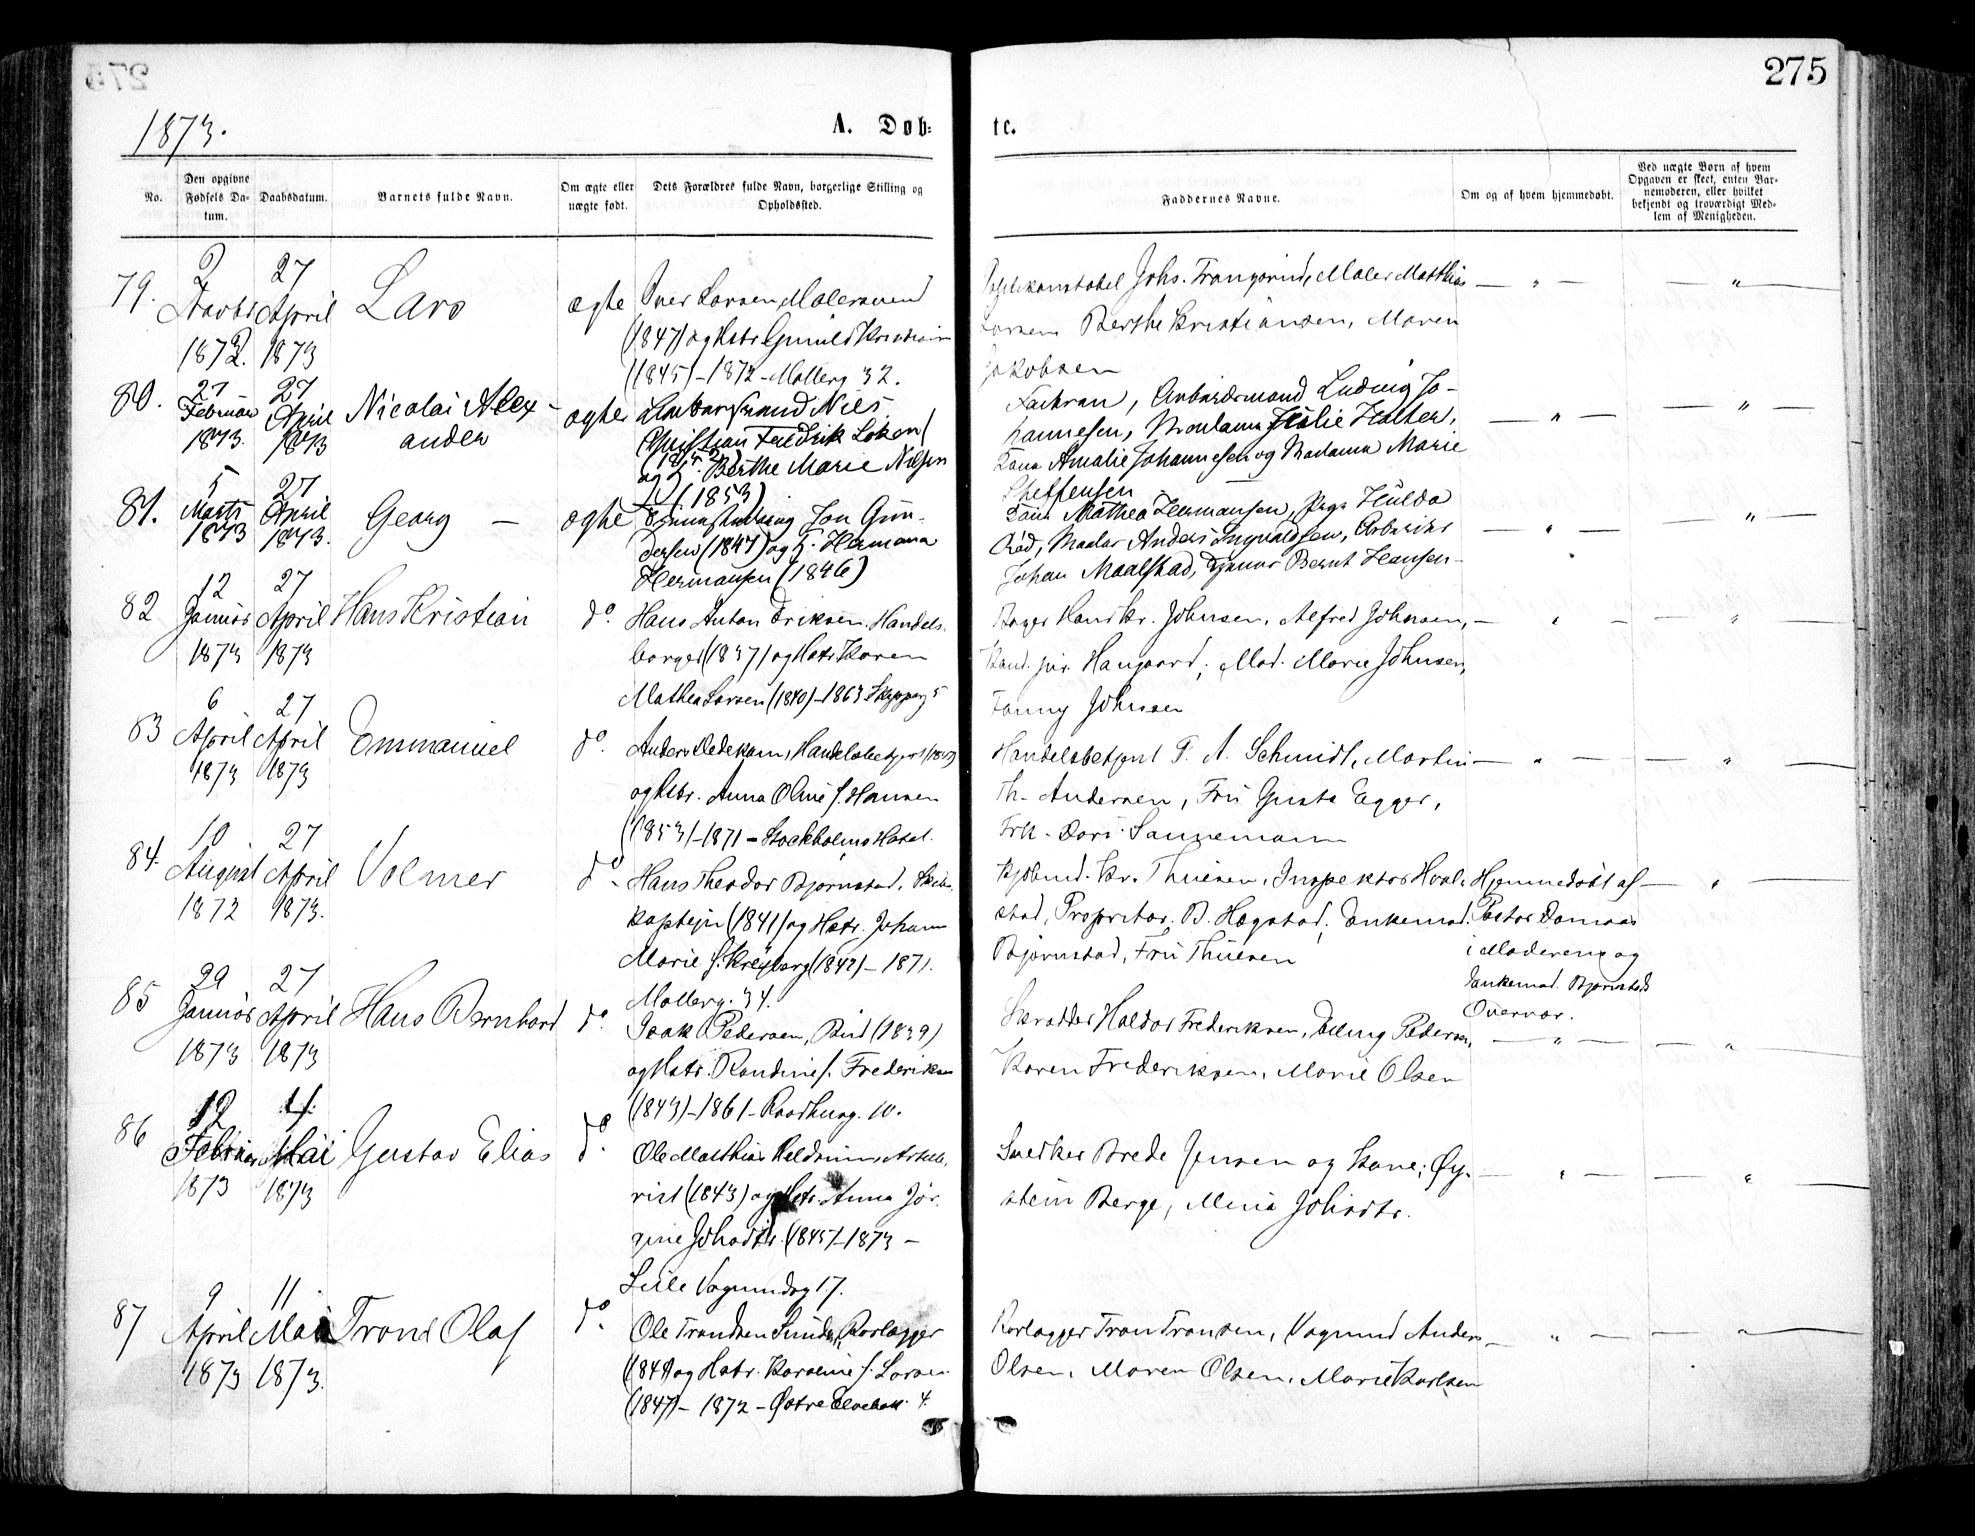 275
1873.
A. Døb-
te.
No.
Den opgivne Fødsels Da-tum.
Daabsdatum.
Barnets fulde Navn.
Om ægte eller uægte født.
Dets Forældres fulde Navn, borgerlige Stilling og Opholdssted.
Faddernes Navne.
Om og af hvem hjemmedøbt.
Ved uægte Børn af hvem Opgaven er skeet, enten Bar-nemoderen, eller hvilket bekjendt og troværdigt Med-lem af Menigheden.
79. 2 27 Lars ægte Iver Larsen, Malersvend
1872. April 1873
(1847) og Hstr Gunild Kristian
(1845) - 1872 - Møllerg 32.
Johs. Maler Matthias
Berthe Kristiansen, Maren
Jakobsen
80. 27 Februar 1873. 27 April 1873 Nicolai Alex-
ander
ægte Nils
Christian Fredrik Loken
og H. Berthe Marie Nilsen
(1853)
Farbran, Arbeidsmand Ludvig Jo-
hannesen, Madame Julie Halter,
Kone Amalie Johannesen og Madame Marie
Steffensen
81. 5 Marts 1873 27 April 1873. Georg - ægte
Jon Gun-
dersen (1847) og H. Hermana
Hermansen (1846)
Kone Mathea Hermansen, Pige Hulda
Maler Anders Ingvaldsen, Arbeider
Johan Maalstad, Bernt Hansen -
82 12 Januar 1873 27 April 1873 Hans Kristian do.
Hans Anton Eriksen. Handels-
borger (1837) og Hstr Karen
Mathea Larsen (1840) - 1863 Skipperg 5
Bager Hans Kr. Johnsen, Alfred Johnsen,
Kand. jur. Haugaard, Mad. Marie Johnsen,
Fanny Johnsen
83 6 April 1873 27 April 1873 Emmanuel do.
Anders Dedekam, Handelsbetjent
og Hstr. Anna Oline f. Hansen
(1853) - 1871 - Stockholms Hotel.
Handelsbetjent F. A. Schmidt, Martin
Th. Andersen, Fru Gusta Egger,
Frk. Dori Sannemann
84. 10 August 1872 27 April 1873. Volmer do -
Hans Theodor Bjørnstad, Skibs-
kaptejn (1841) og Hstr. Johann
Marie f. Kreyberg (1842) - 1871.
Møllerg. 34.
Kjøbmd. Kr. Thuesen, Inspektør Hval-
stad, Propritær B. Høgstad, Enkemad.
Bjørnstad, Fru Thuesen
Hjemmedøbt af
Pastor
i og
Enkemad. Bjørnstads
Overvær.
85 29 Januar 1873 27 April 1873 Hans Bernhard do.
Isak Pedersen, Bud (1839)
og Hstr. Randine f. Frederiksen
(1843) - 1861 - Raadhusg. 10.
Skrædder Haldor Frederiksen, Elling Pedersen,
Karen Frederiksen, Marie Olsen
86 12 Februar 1873 4 Mai 1873 Gustav Elias do.
Ole Matthias
(1843) og Hstr Anna Jør-
gine Johsdtr. (1845) - 1873 -
Lille Vognmdsg 17.
Snedker Brede Jensen og Kone; Øy-
stein Berge, Mina Johsdtr.
87 9 April 1873 11 Mai 1873. Trond Olaf do.
Ole Trondsen Sunde, Rørlægger
og Hstr. Karoline f. Larsen
(1847) - 1872 - Østre Elvebak 4.
Rørlægger Tron Tronsen, Vognmd Anders
Olsen, Maren Olsen, Marie Karlsen